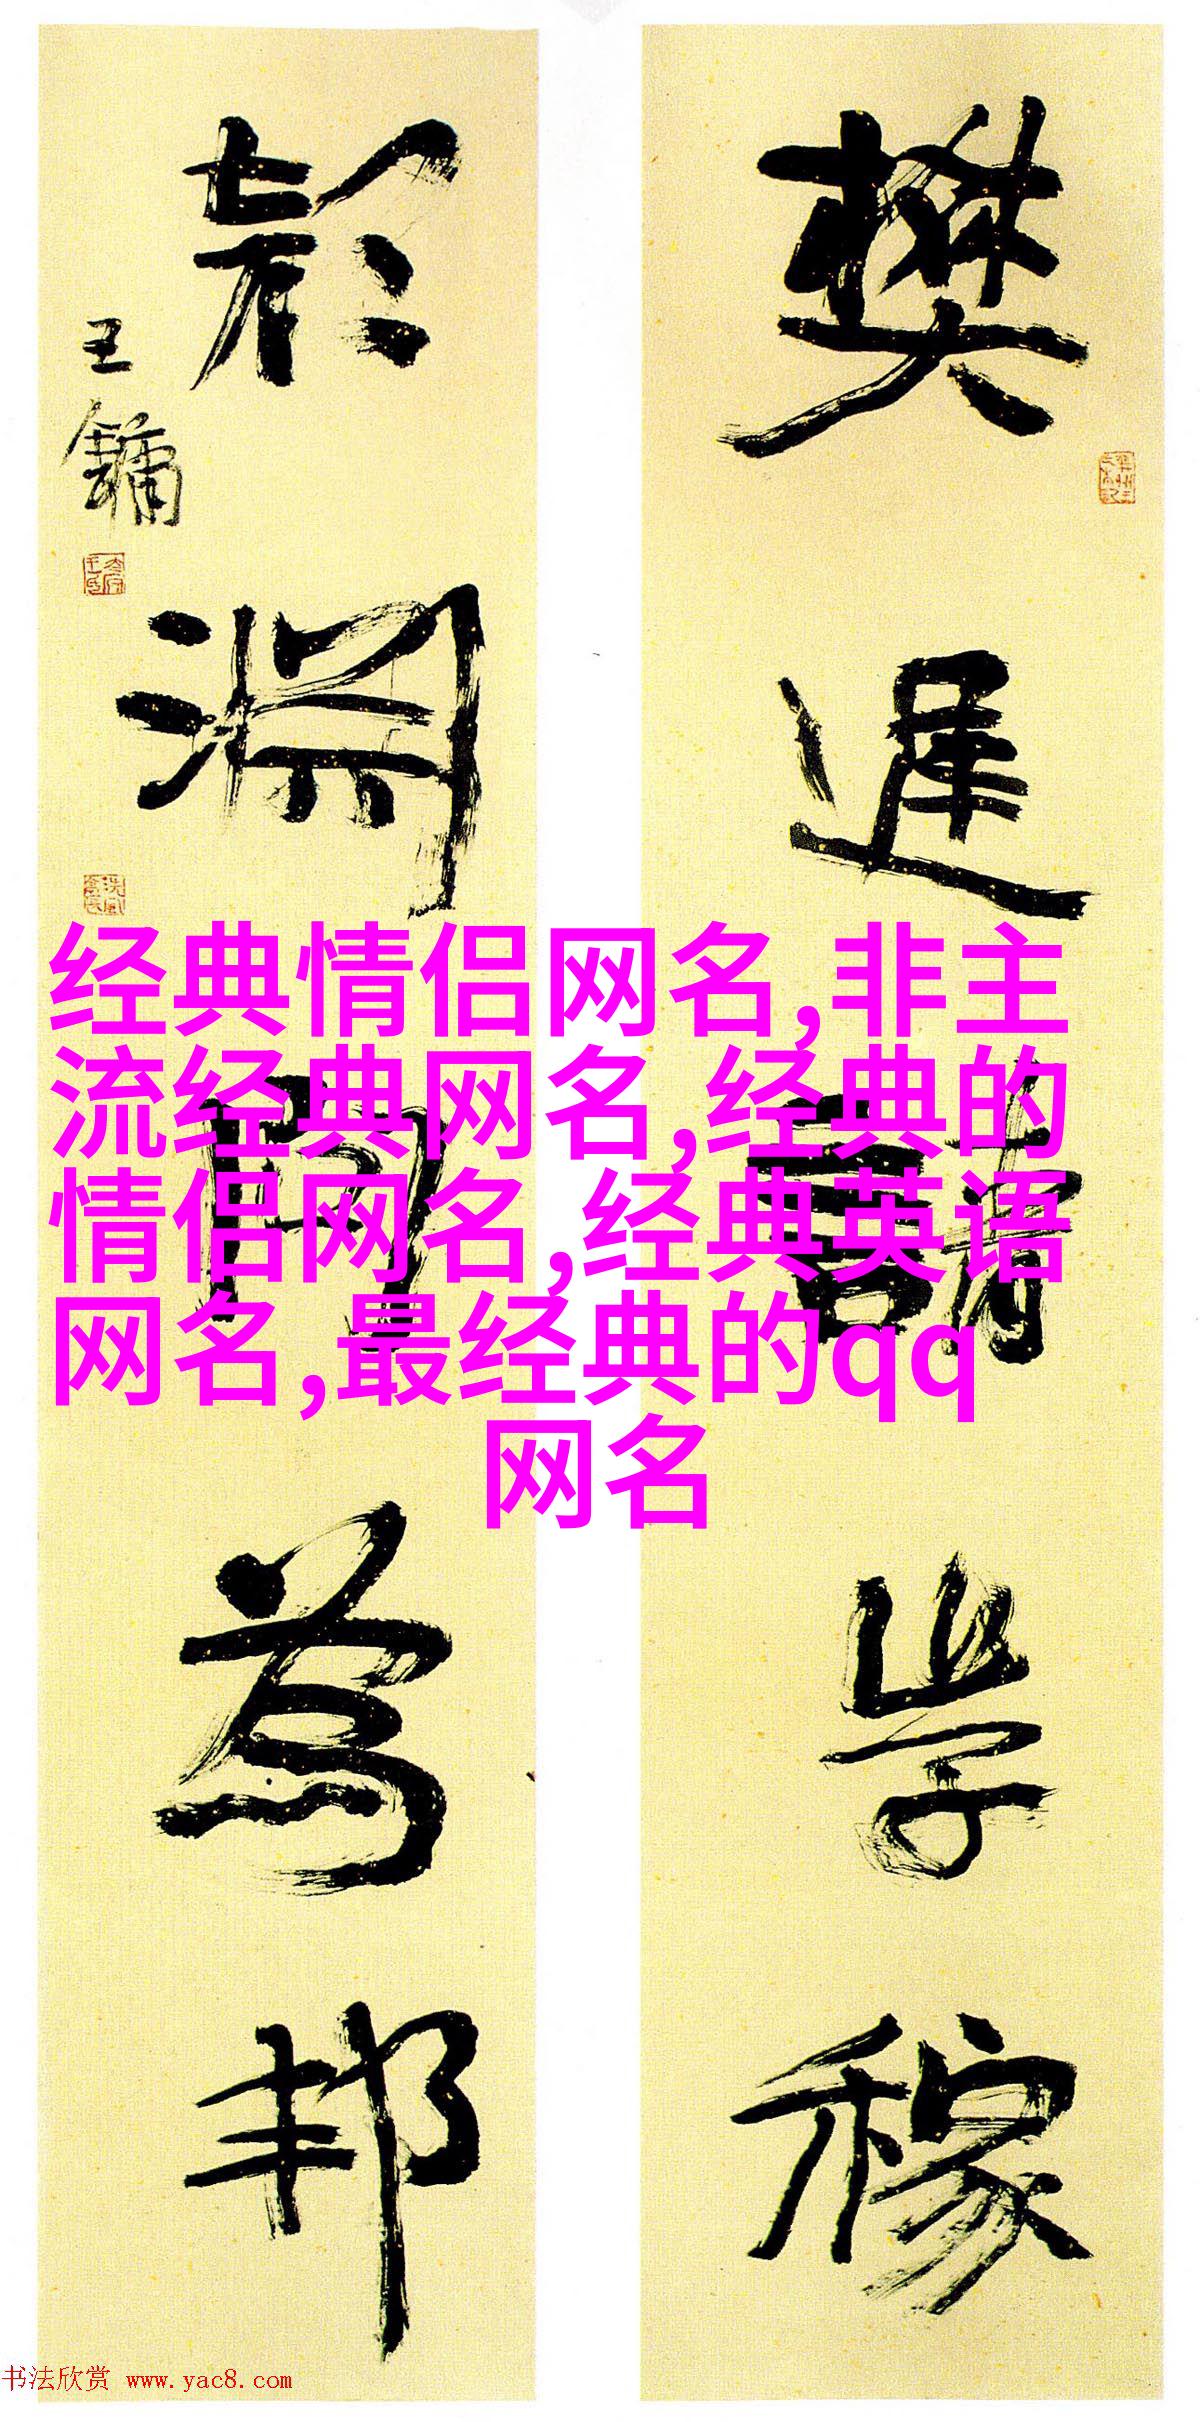 樊遲請學稼
顏淵問為邦
王鏞
经典情侣网名,非主
流经典网名,经典的
情侣网名,经典英语
网名,最经典的qq
网名
书法欣赏 www.yac8.com